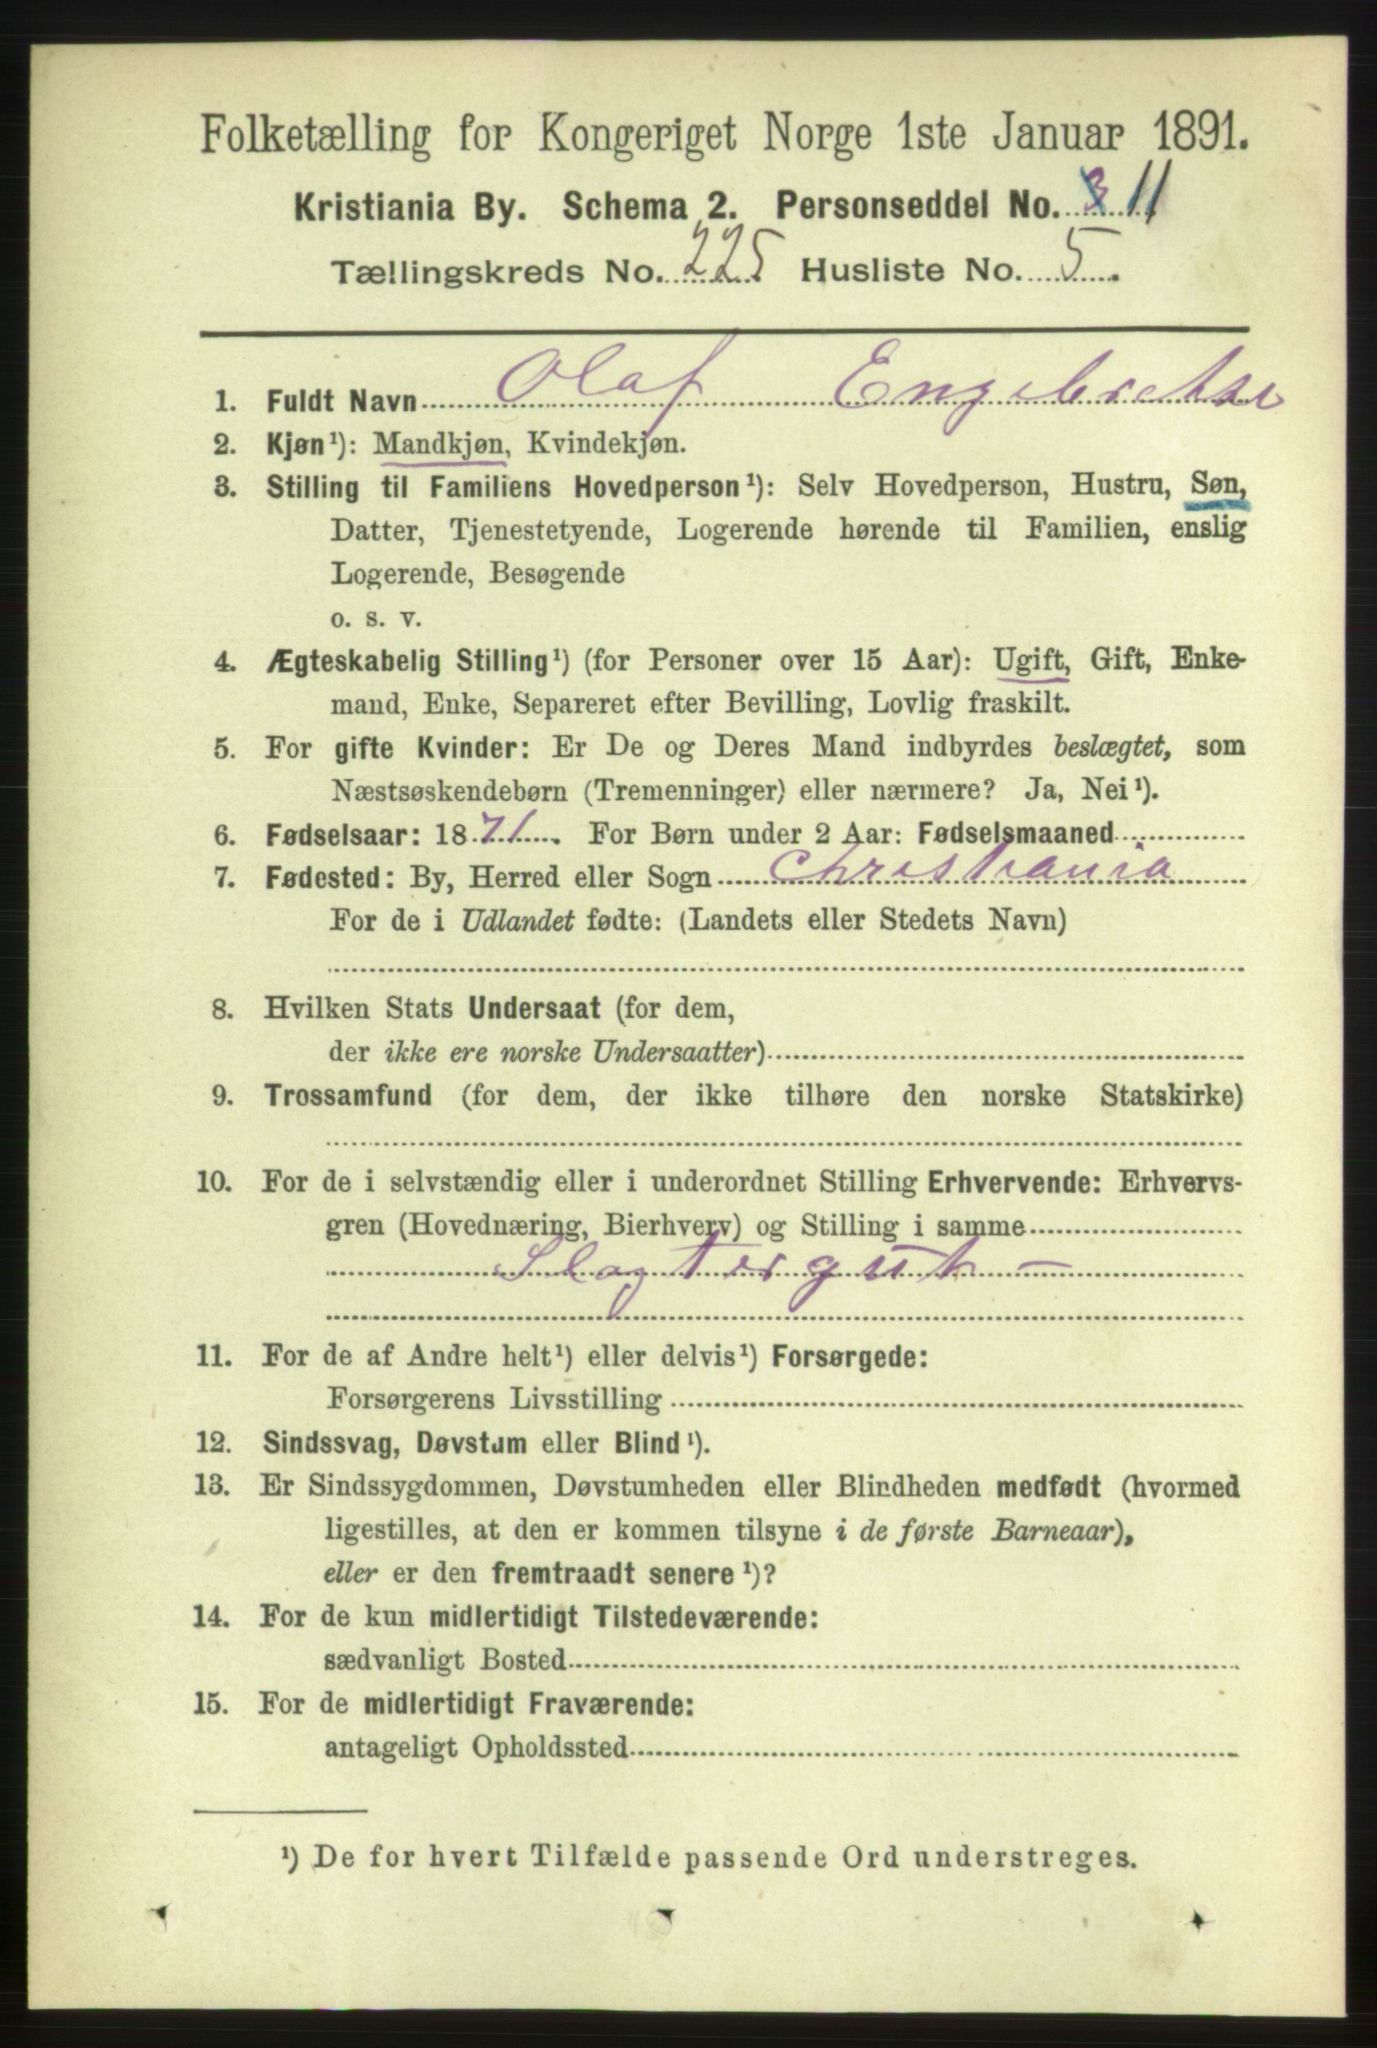 Folketælling for Kongeriget Norge 1ste Januar 1891.
Kristiania By. Schema 2. Personseddel No. 3 11
Tællingskreds No. 225 Husliste No. 5.
1. Fuldt Navn Olaf Engebretse
2. Kjøn¹): Mandkjøn, Kvindekjøn.
3. Stilling til Familiens Hovedperson¹): Selv Hovedperson, Hustru, Søn,
Datter, Tjenestetyende, Logerende hørende til Familien, enslig
Logerende, Besøgende
o. s. v.
4. Ægteskabelig Stilling¹) (for Personer over 15 Aar): Ugift, Gift, Enke-
mand, Enke, Separeret efter Bevilling, Lovlig fraskilt.
5. For gifte Kvinder: Er De og Deres Mand indbyrdes beslægtet, som
Næstsøskendebørn (Tremenninger) eller nærmere? Ja, Nei¹).
6. Fødselsaar: 1871. For Børn under 2 Aar: Fødselsmaaned
7. Fødested: By, Herred eller Sogn Christiania
For de i Udlandet fødte: (Landets eller Stedets Navn)
8. Hvilken Stats Undersaat (for dem,
der ikke ere norske Undersaatter)
9. Trossamfund (for dem, der ikke tilhøre den norske Statskirke)
10. For de i selvstændig eller i underordnet Stilling Erhvervende: Erhvervs-
gren (Hovednæring, Bierhverv) og Stilling i samme
Slagtergut –
11. For de af Andre helt¹) eller delvis¹) Forsørgede:
Forsørgerens Livsstilling
12. Sindssvag, Døvstum eller Blind¹).
13. Er Sindssygdommen, Døvstumheden eller Blindheden medfødt (hvormed
ligestilles, at den er kommen tilsyne i de første Barneaar),
eller er den fremtraadt senere¹)?
14. For de kun midlertidigt Tilstedeværende:
sædvanligt Bosted
15. For de midlertidigt Fraværende:
antageligt Opholdssted
¹) De for hvert Tilfælde passende Ord understreges.